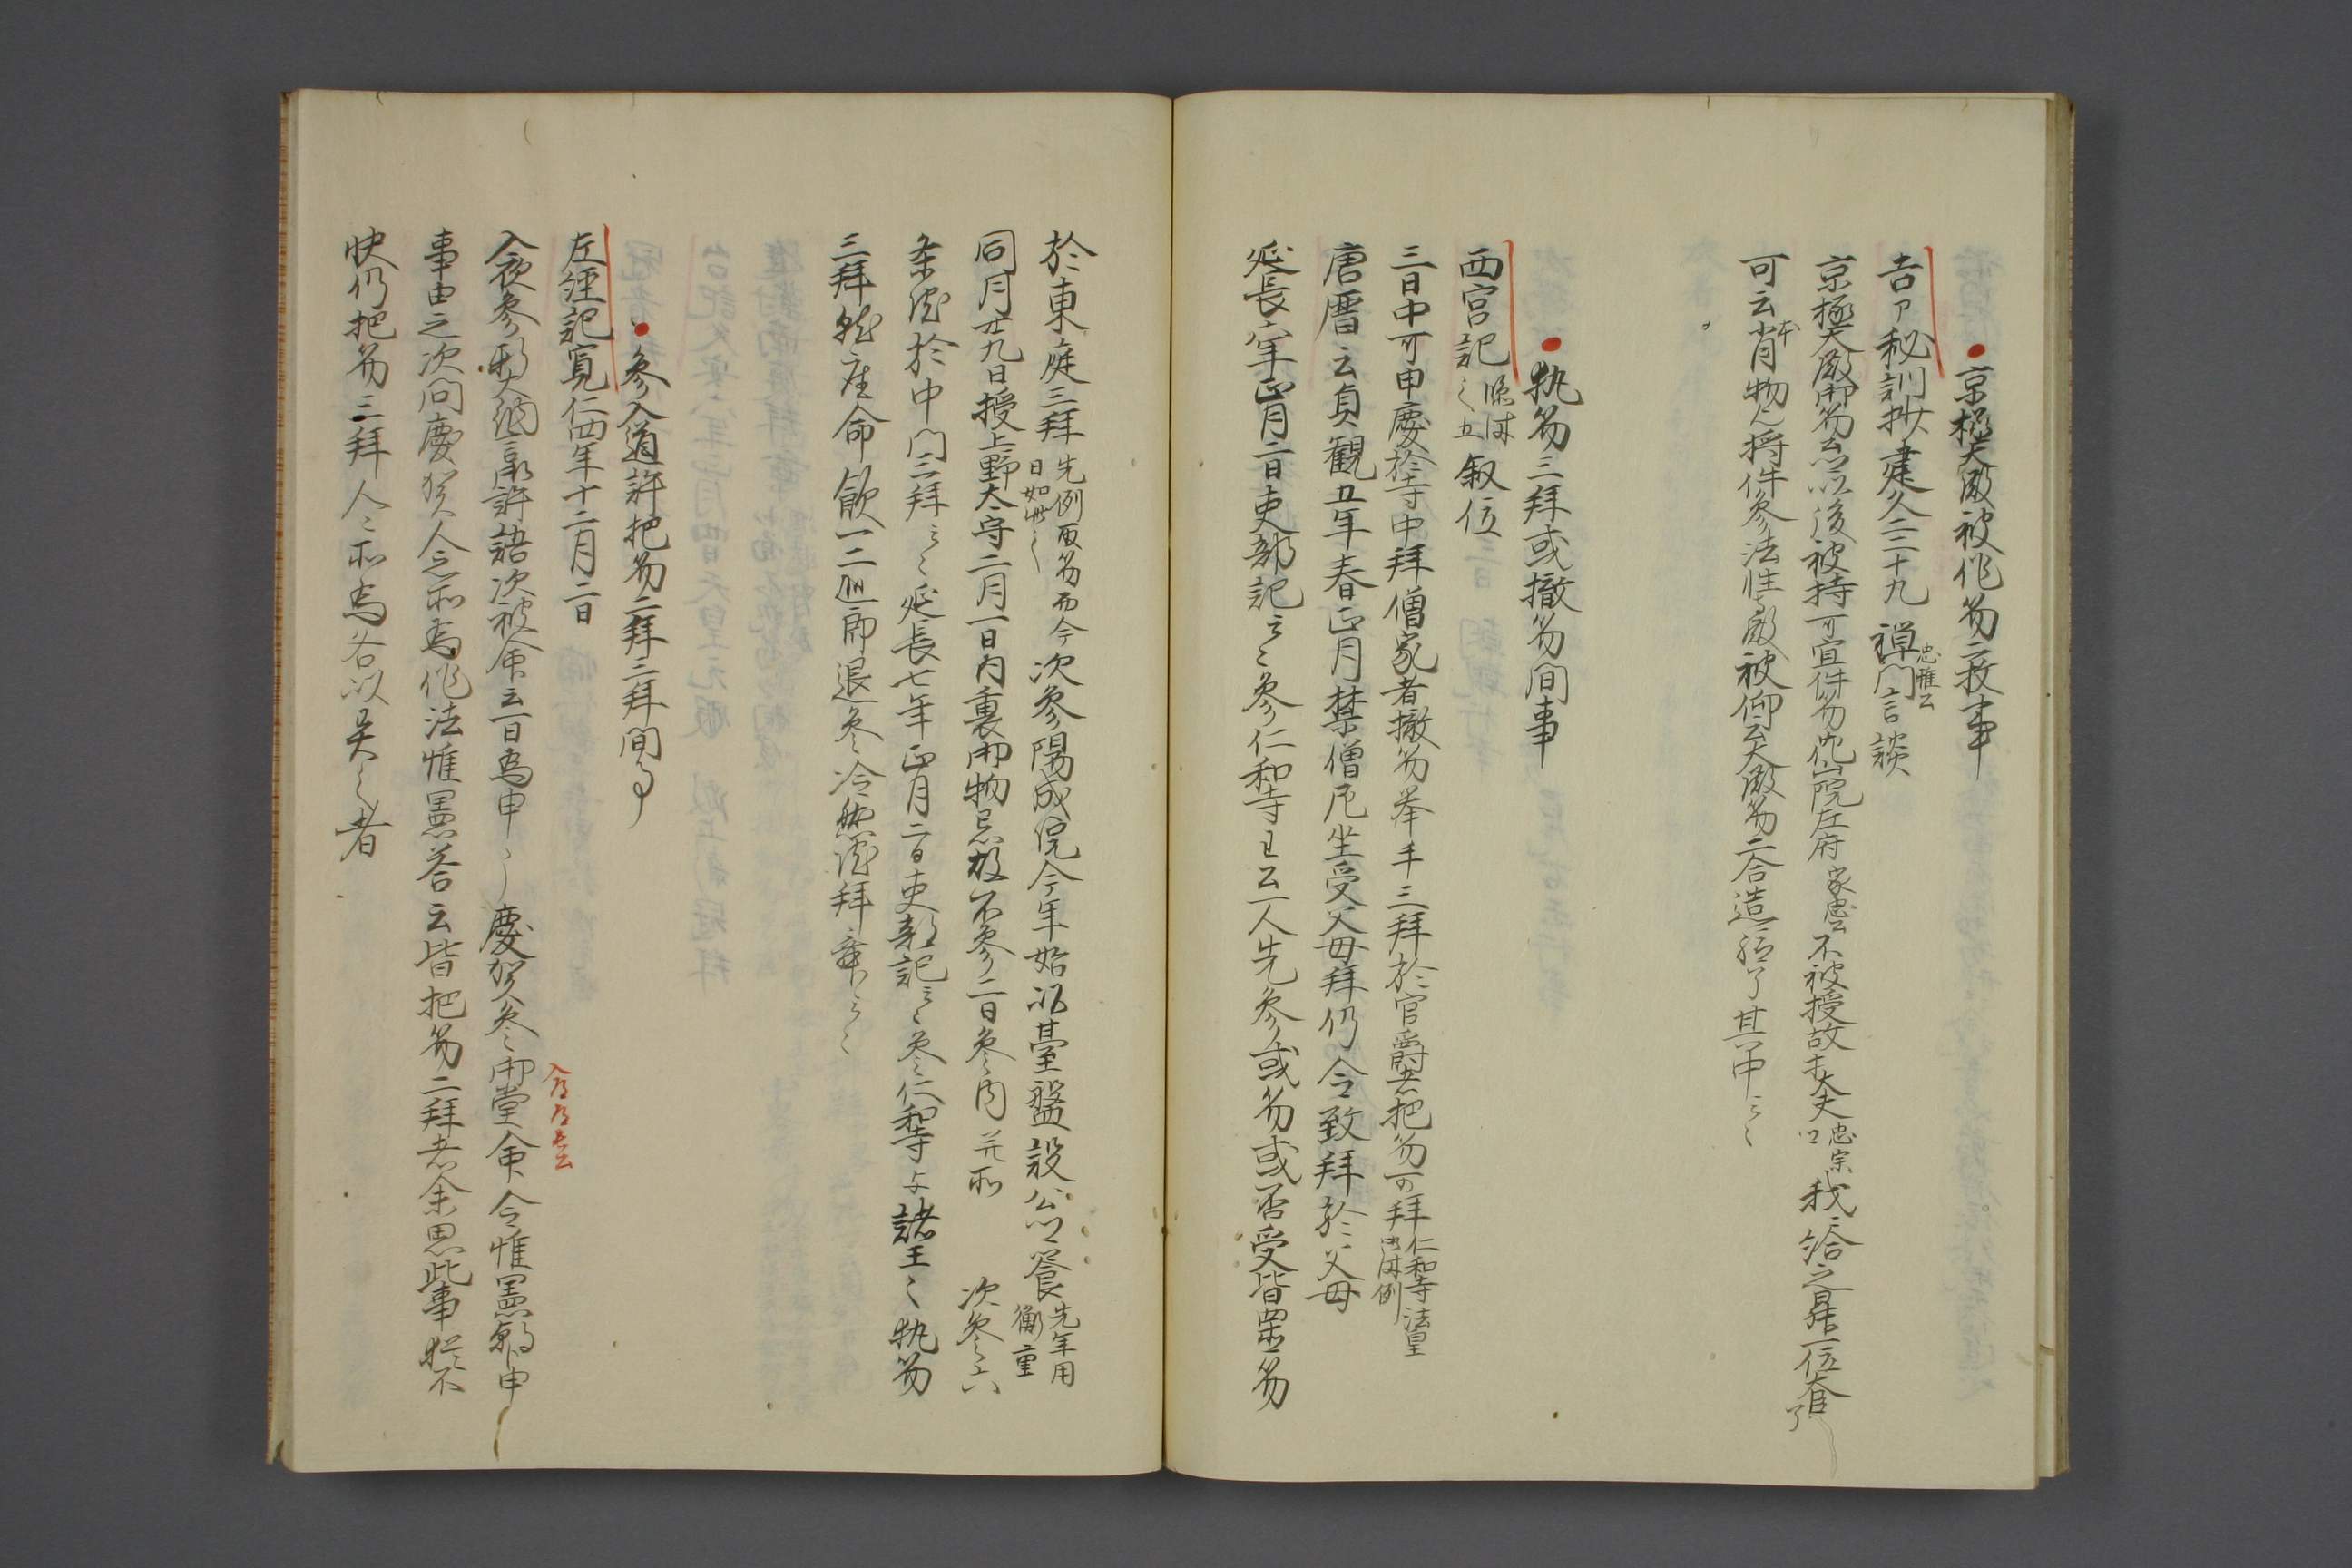 京極大殿被作笏二枚事
吉口秘訓抄建久二二十九禅門言談
忠雅云
京極大殿御笏云以後被持可宜件笏花山院左府家忠云不被授故京大夫忠宗我給之昇一位大臣了
可云肖物也将件参法性寺殿被仰云大殿笏二合造給了其中云々
執笏三拜或撤笏間事
西宮記々五叙位
三日中可申慶於寺中拜僧家者撤笏挙手三拜於官爵者把笏可拜仁和寺法皇御時例
唐暦云貞観五年春正月禁僧尼坐受父母拜仍令致拜於父母
延長六年正月二日吏部記云々参仁和寺王公一人先参或笏或否受皆置笏
於東庭三拜先例取笏而今日如此々次参陽成院今年始以臺盤設公卿饗先年用衝重
同月廿九日授上野太守二月一日内裏御物忌故不参二日参内并所次参六
条院於中門三拜云々延長七年正月二日吏部記云々参仁和寺与諸王々執笏
三拜就座命飲一二巡即退参冷然院拜舞云々
参入道許把笏二拜三拜間事
左経記寛仁四年十二月二日
入夜参那大納言殿許語次被命云一日為申々慶賀参御堂命令惟憲朝申
事由之次問慶賀人之所為作法惟憲答云皆把笏二拜者余思此事猶不
快仍把笏三拜人々所為各以異々者